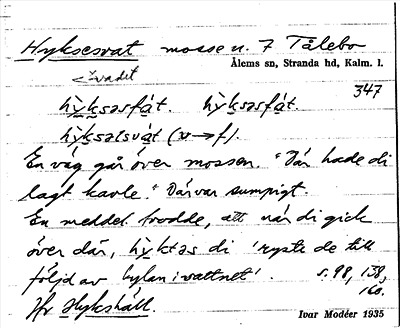 Hyksesvat mosse n. 7 Tålebo
< -vadet
Ålems sn, Stranda hd, Kalm. l.
347
hỳksəsfát. hỳksəsfát.
hỳksəlsvát (v→f).
En väg går över mossen. "Där hade di
lagt kavle." Där var sumpigt.
En meddel. trodde, att när di gick
över där, hỳktəs di 'ryste de till
följd av kylan i vattnet'. s. 98, 158,
160.
Jfr Hykshäll.
Ivar Modéer 1935